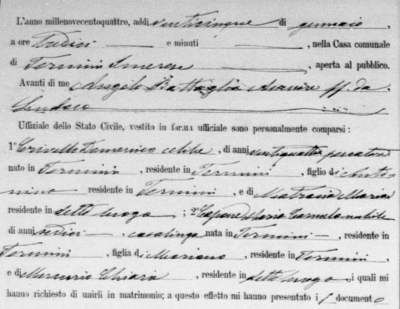 L'anno millenovecentoquattro, addì venticinque di gennaio,
a ore tredici e minuti , nella Casa comunale
di Termini Imerese , aperta al pubblico.
Avanti di me Angelo Battaglia ff. da
Sindaco
Uffiziale dello Stato Civile, vestito in forma ufficiale sono personalmente comparsi:
1° Domenico celibe, di anni ventiquattro
nato in Termini, residente in Termini, figlio di Anto
nino residente in Termini, e di Maria
residente in detto luogo; 2° Maria Carmela nubile
di anni sedici, casalinga nata in Termini, residente in
Termini, figlia di Mariano, residente in Termini,
e di Mercurio Chiara, residente in detto luogo i quali mi
hanno richiesto di unirli in matrimonio; a questo effetto mi hanno presentato i documento